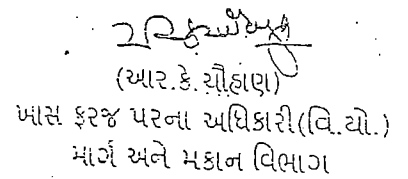 (આર.કે.ચૌહાણ)
ખાસ ફરજ પરના અધિકારી(વિ.યો.)
માર્ગ અને મકાન વિભાગ